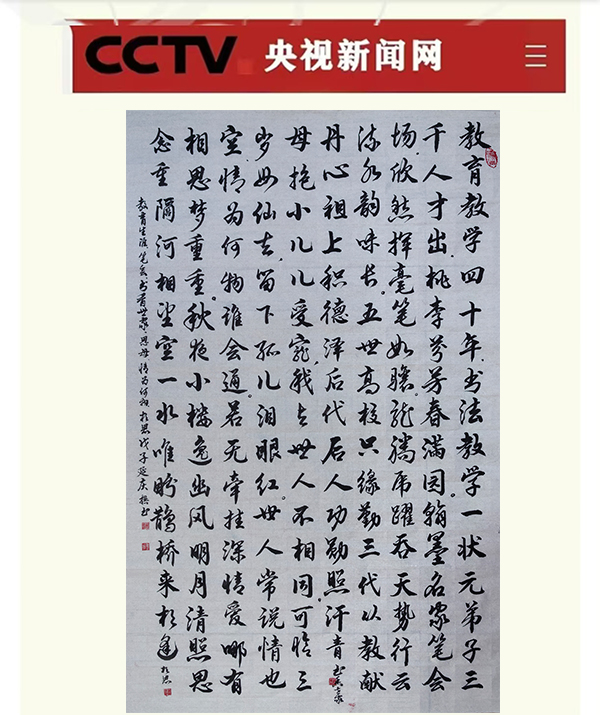 CCTV 央视新闻网
教育教学四十年.书法教学一状元弟子三
千人才出.桃李芬芳春满园.翰墨名家笔会
场.欣然挥毫笔如龙腾虎跃吞天势行云
流水韵味长.五世高枝只缘勤三代从教献
丹心祖上积德泽后代后人功勋照汗青.书香世家
母抱小儿儿受宠.我与世人不相同.可怜三
岁母仙去.留下孤儿泪眼红.世人常说情也
空.情为何物谁会通.若无牵挂深情爱哪有
相思梦重重.秋夜小楼逸幽风明月清照思
念重隔河相望空一水唯盼鹊桥来相逢 相思
教育生涯.笔会.书香世家.思母.情为何物.相思戊子延庆撰书